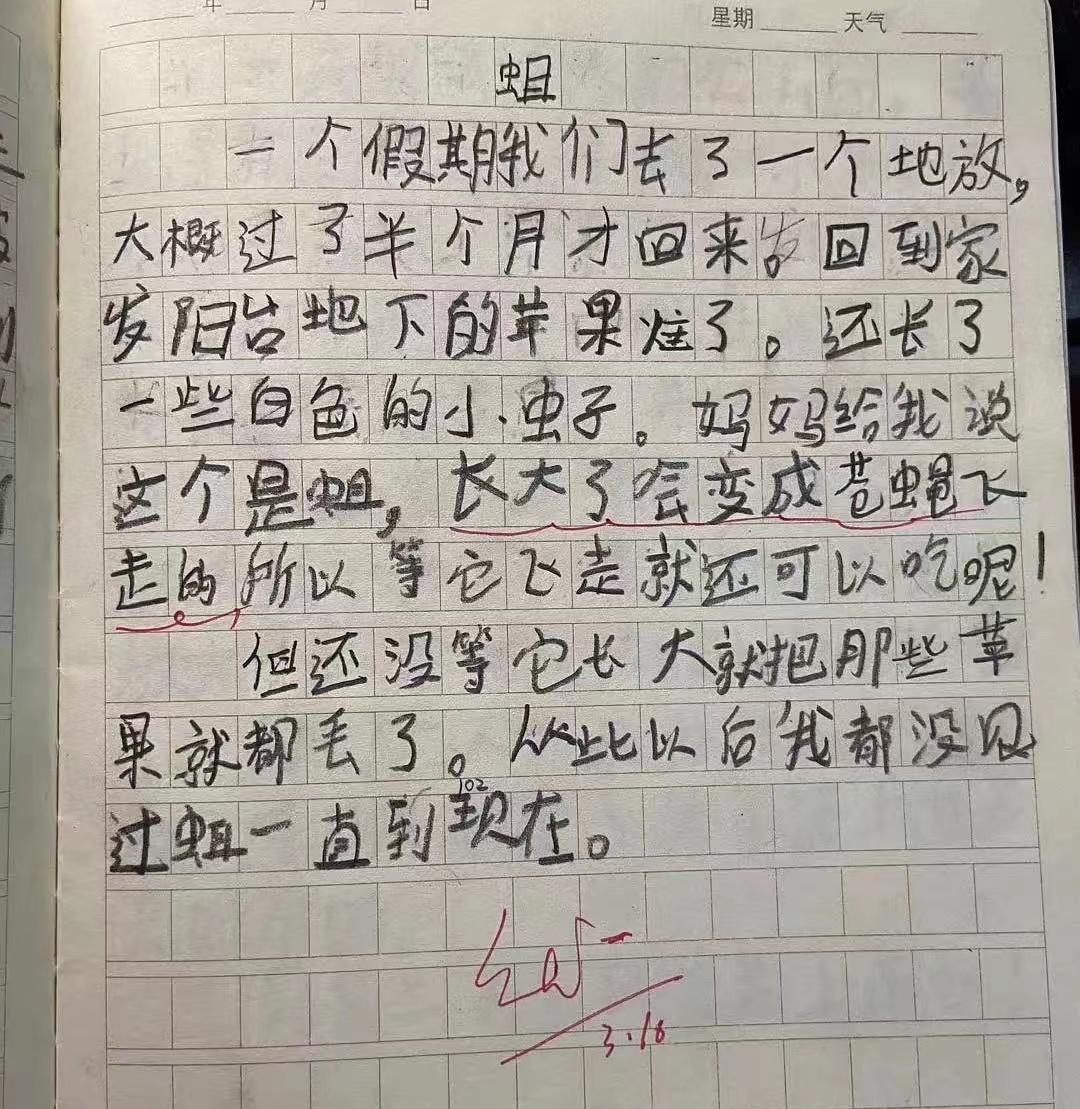 年 月 日 星期 天气
蛆
一个假期我们去了一个地放,
大概过了半个月才回来。回到家
发阳台地下的苹果烂了。还长了
一些白色的小虫子。妈妈给我说
这个是蛆,长大了会变成苍蝇飞
走的所以等它飞走就还可以吃呢!
但还没等它长大就把那些苹
果就都丢了。从此以后我都没见
过蛆一直到现在。
102
3.18